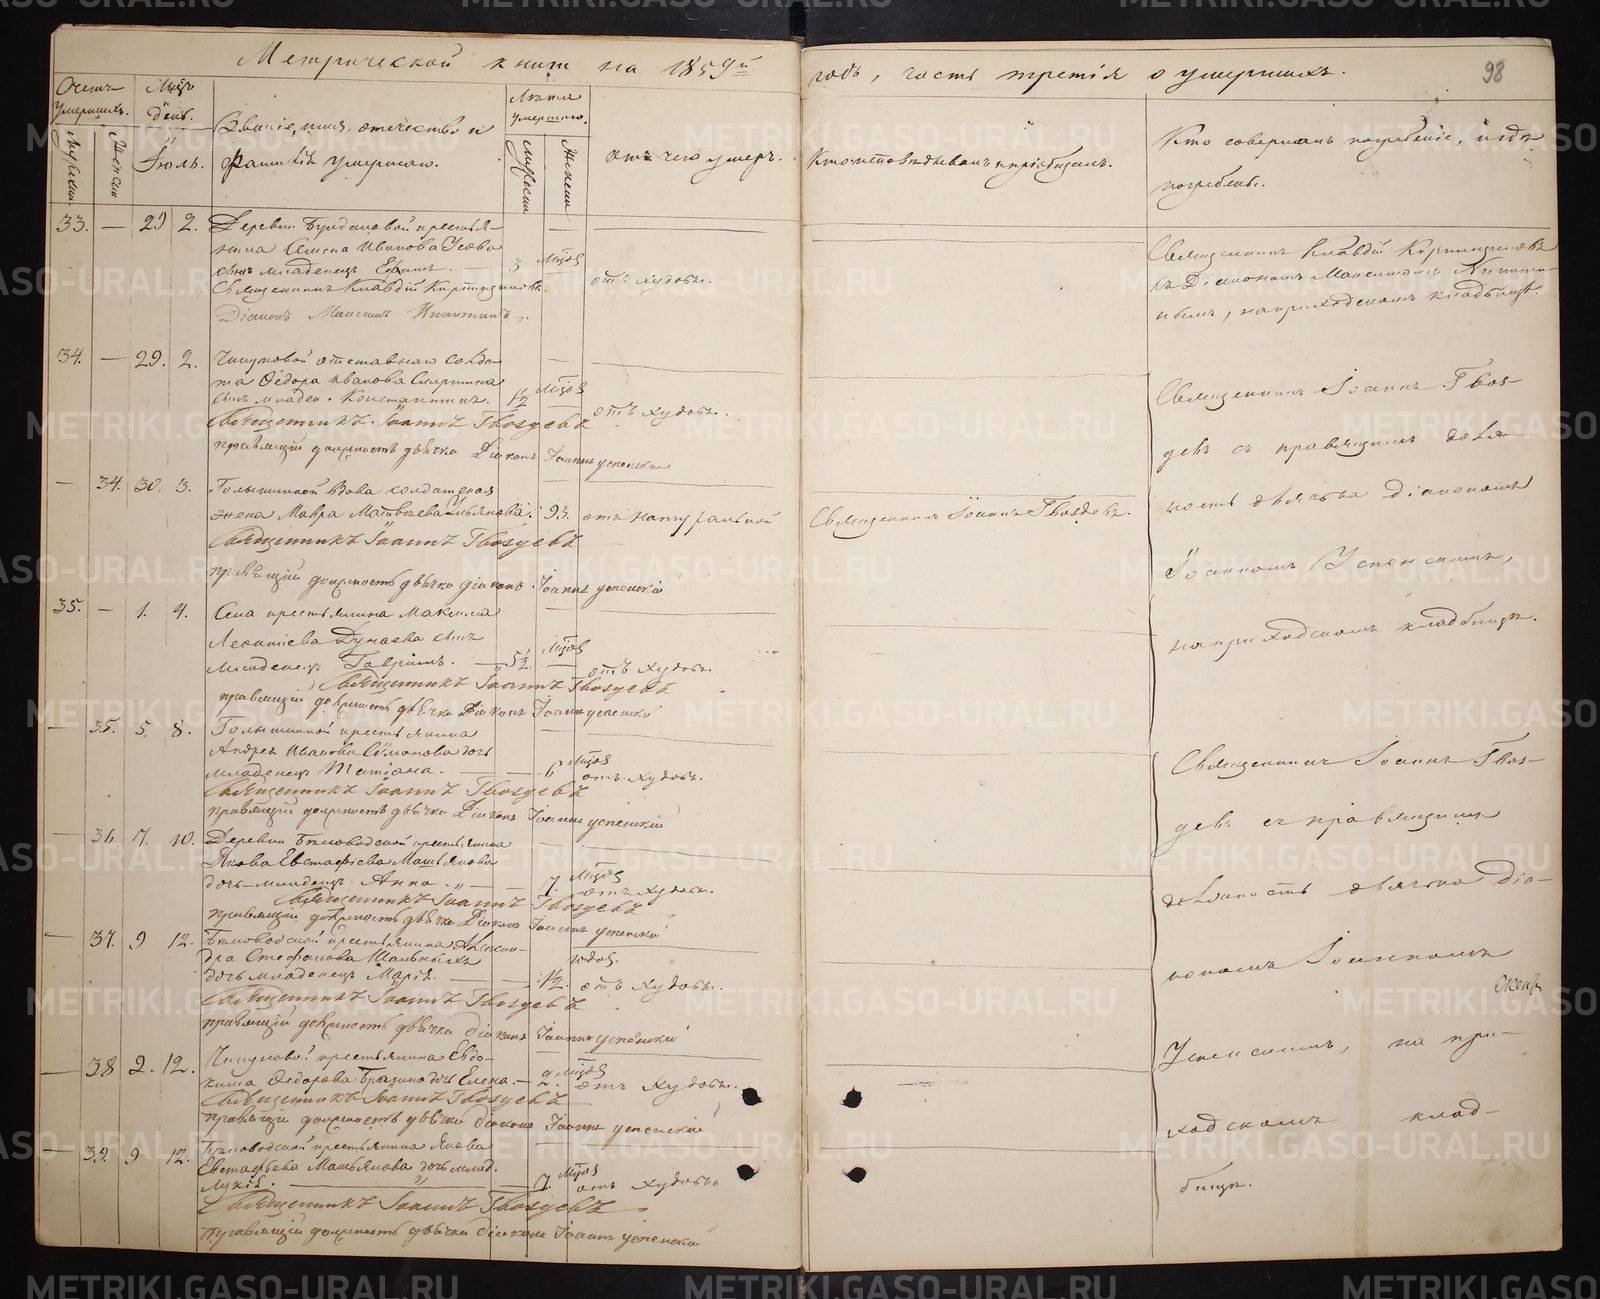 Метрической книги на 1859й
годъ, часть третія о умершихъ.
98
Счетъ умершихъ.
Мужеска
Женска
Мѣсяцъ день.
Іюль.
Званіе, имя, отечество и
фамилія умершаго.
Лѣта умершаго.
Мужески
Женски
отъ чего умеръ.
Кто исповѣдывалъ и пріобщалъ.
Кто совершалъ погребеніе, и гдѣ
погребены.
33. — 29 2. Деревни крестья-
нина Семена Иванова
сынъ младенецъ Ефимъ. — 3 мѣсяц отъ худобы.
Священникъ Клавдій
Діаконъ Максимъ Никитинъ.
Священникъ Клавдій
съ Діакономъ Максимомъ Никити-
нымъ, на приходскомъ кладбищѣ.
34. — 29. 2. отставнаго солда-
та Ѳедора Иванова
сынъ младен. Константинъ. 1½ мѣсяц отъ худобы.
Священникъ Іоаннъ Гвоздевъ
правящій должность дьячка Діаконъ Іоаннъ Успенскій
Священникъ Іоаннъ Гвоз-
девъ съ правящимъ долж-
ность дьячка діакономъ
Іоанномъ Успенскимъ,
на приходскомъ кладбищѣ.
— 34. 30. 3. вдова солдатская
жена Мавра Матвѣева 93. отъ натуральной
Священникъ Іоаннъ Гвоздевъ.
Священникъ Іоаннъ Гвоздевъ
правящій должность дьячка діаконъ Іоаннъ Успенскій
35. — 1. 4. Села крестьянина Максима
Леонтіева Дунаева сынъ
младенецъ Гавріилъ. — 5½ мѣсяц отъ худобы.
Священникъ Іоаннъ Гвоздевъ
правящій должность дьячка Діаконъ Іоаннъ Успенскій
— 35. 5. 8. крестьянина
Андрея Иванова дочь
младенецъ Татіана. — 6 мѣсяц отъ худобы.
Священникъ Іоаннъ Гвоздевъ
правящій должность дьячка Діаконъ Іоаннъ Успенскій
Священникъ Іоаннъ Гвоз-
девъ съ правящимъ
должность дьячка Діа-
кономъ Іоанномъ
Успенскимъ, на при-
ходскомъ клад-
бищѣ.
— 36. 7. 10. Деревни Бѣловодской крестьянина
Якова Евстафіева
дочь младенецъ Анна. — 7. мѣсяц отъ худобы.
Священникъ Іоаннъ Гвоздевъ
правящій должность дьячка Діаконъ Іоаннъ Успенскій
— 37. 9 12. Бѣловодской крестьянина Алексан-
дра Стефанова
дочь младенецъ Марія. — 1½. годов. отъ худобы.
Священникъ Іоаннъ Гвоздевъ
правящій должность дьячка діаконъ Іоаннъ Успенскій
— 38 2. 12. крестьянина Евдо-
кима Ѳедорова дочь Елена. — 2. мѣсяц отъ худобы.
Священникъ Іоаннъ Гвоздевъ
правящій должность дьячка діаконъ Іоаннъ Успенскій
— 39. 9 12. Бѣловодской крестьянина Якова
Евстафьева дочь млад.
— 7. мѣсяц отъ худобы
Священникъ Іоаннъ Гвоздевъ
правящій должность дьячка діаконъ Іоаннъ Успенскій
METRIKI.GASO-URAL.RU